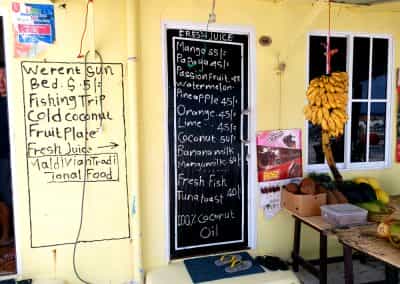 We rent Sun
Bed.$.5/-
Fishing Trip
Cold coconut
Fruit Plate
Fresh Juice →
Maldivian Tradi
Tional Food
FRESH JUICE
Mango 55/-
Papaya 45/-
Passion Fruit 45
Watermelon
Pineapple 45/-
Orange 45/-
Lime 45/-
Coconut 50/-
Banana milk
Mango milk 50/-
Fresh Fish
Tuna toast 20/-
100% Coconut
Oil